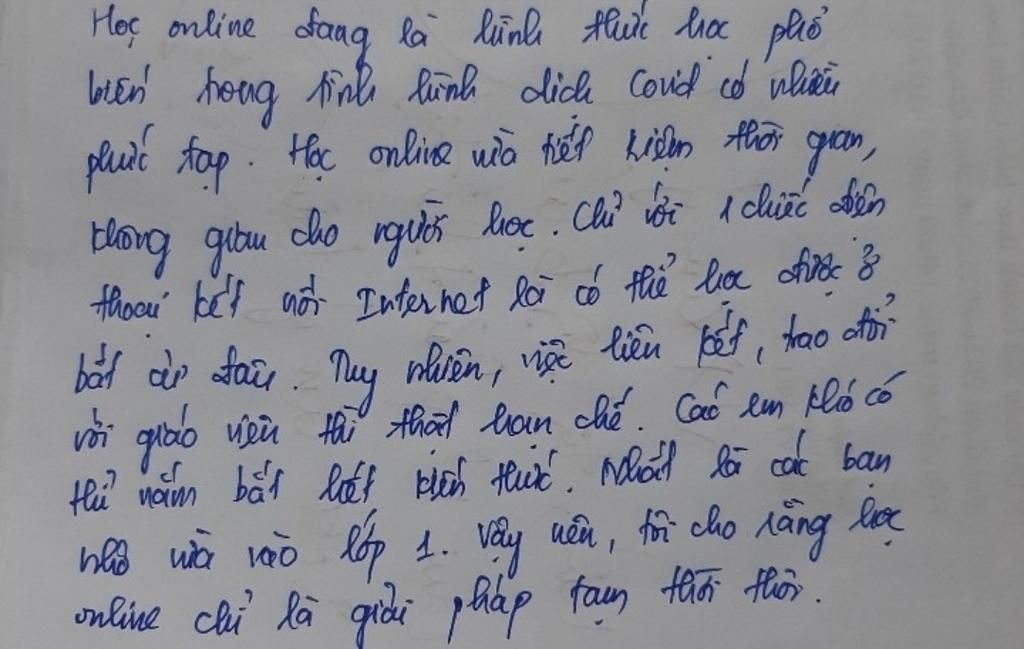 Học online đang là hình thức học phổ
biến trong tình hình dịch Covid có nhiều
phức tạp. Học online vừa tiết kiệm thời gian,
không gian cho người học. Chỉ với 1 chiếc điện
thoại kết nối Internet là có thể học được ở
bất cứ đâu. Tuy nhiên, việc liên kết, trao đổi
với giáo viên thì thật hạn chế. Các em khó có
thể nắm bắt hết kiến thức. Nhất là các bạn
nhỏ vừa vào lớp 1. Vậy nên, tôi cho rằng học
online chỉ là giải pháp tạm thời thôi.